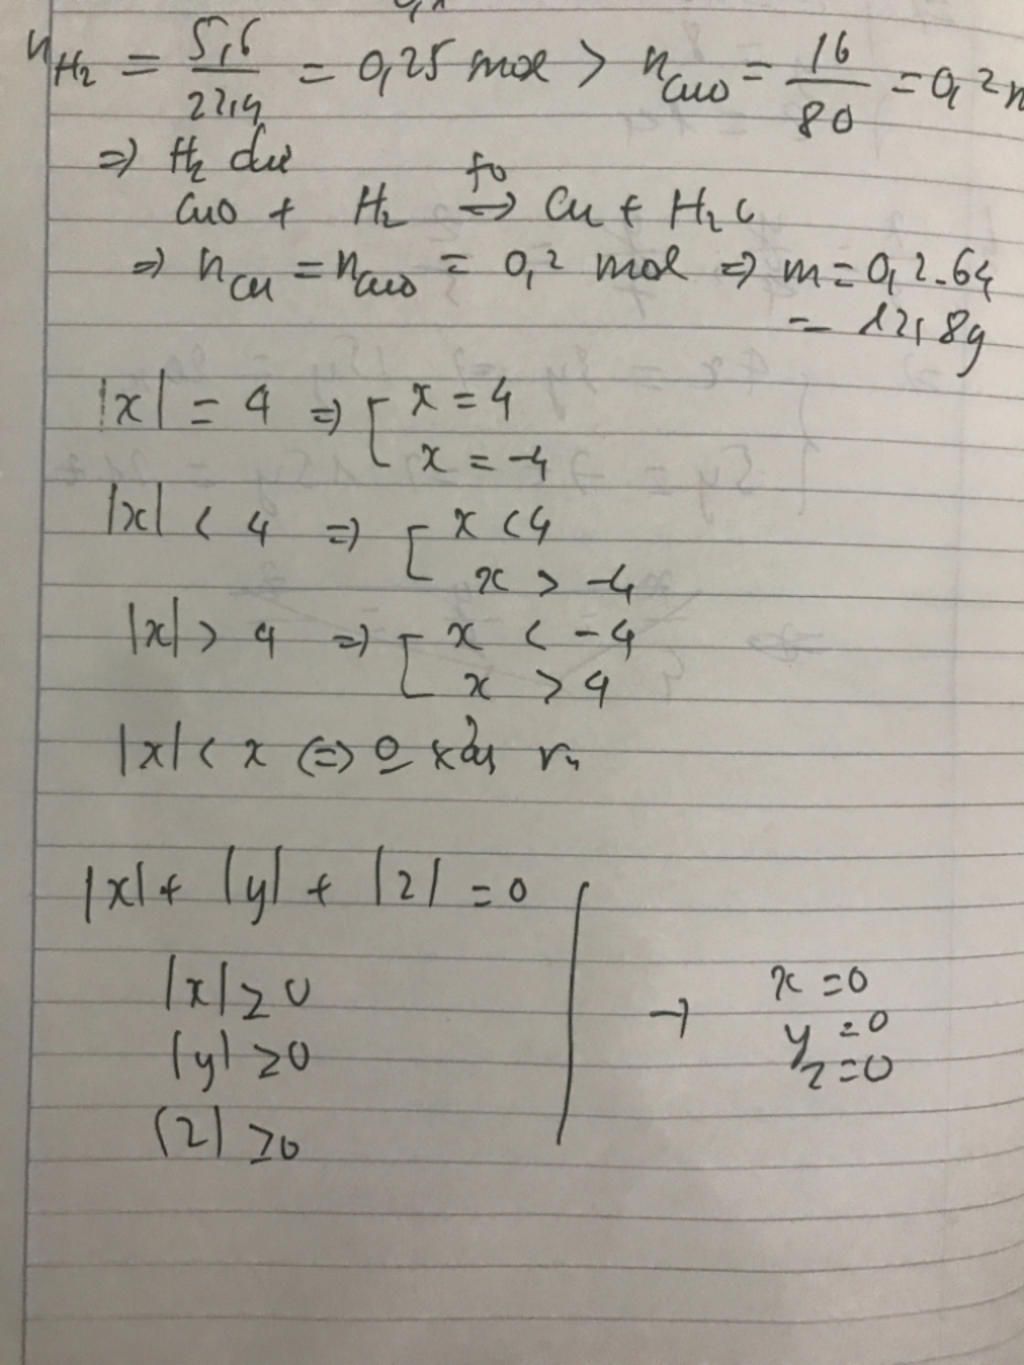 n_{H_2} = \frac{5,6}{22,4} = 0,25 mol > n_{CuO} = \frac{16}{80} = 0,2
=> H_2 dư
CuO + H_2 \xrightarrow{t^o} Cu + H_2O
=> n_{Cu} = n_{CuO} = 0,2 mol => m = 0,2.64
= 12,8g
|x| = 4 => [ x = 4
x = -4
|x| < 4 => [ x < 4
x > -4
|x| > 4 => [ x < -4
x > 4
|x| < x <=>
|x| + |y| + |z| = 0
|x| ≥ 0
|y| ≥ 0
|z| ≥ 0
→ x = 0
y = 0
z = 0